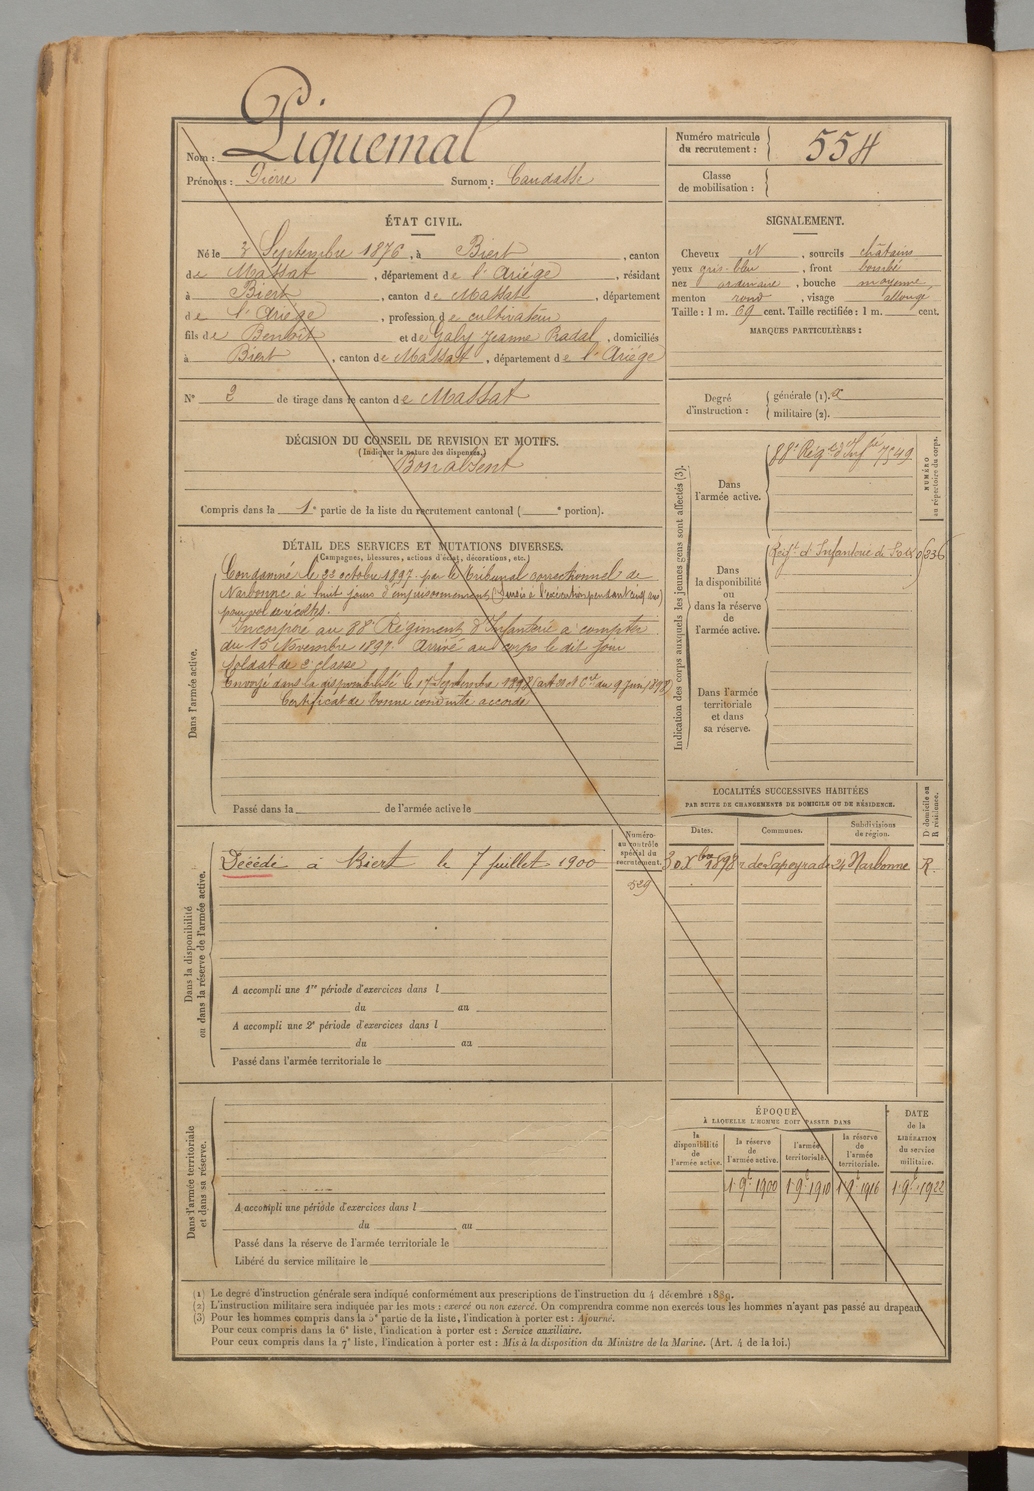 Nom : Piquemal
Prénoms : Pierre Surnom :
Numéro matricule du recrutement : 554
Classe de mobilisation :
ÉTAT CIVIL.
Né le 3 Septembre 1876, à Biert, canton
de Massat, département de l'Ariége, résidant
à Biert, canton de Massat, département
de l'Ariége, profession de cultivateur
fils de Benoît et de Galy Jeanne Radal, domiciliés
à Biert, canton de Massat, département de l'Ariége
N° 2 de tirage dans le canton de Massat
SIGNALEMENT.
Cheveux N, sourcils châtains
yeux gris-bleu, front bombé
nez ordinaire, bouche moyenne
menton rond, visage allongé
Taille : 1 m. 69 cent. Taille rectifiée : 1 m. cent.
MARQUES PARTICULIÈRES :
Degré d'instruction : générale (1).
militaire (2).
DÉCISION DU CONSEIL DE REVISION ET MOTIFS.
(Indiquer la nature des dispenses.)
Bon absent
Compris dans la 1e partie de la liste du recrutement cantonal ( e portion).
DÉTAIL DES SERVICES ET MUTATIONS DIVERSES.
(Campagnes, blessures, actions d'éclat, décorations, etc.)
Dans l'armée active.
Condamné le 23 octobre 1897 par le Tribunal correctionnel de
Narbonne à huit jours d'emprisonnement (Sursis à l'exécution pendant cinq ans)
pour vol de récoltes.
Incorporé au 88e Régiment d'Infanterie à compter
du 15 Novembre 1897. Arrivé au corps le dit jour
Soldat de 2e classe
Envoyé dans la disponibilité le 17 Septembre 1898 du 9 juin 1898)
Certificat de bonne conduite accordé
Passé dans la de l'armée active le
Indication des corps auxquels les jeunes gens sont affectés (3).
NUMÉRO au répertoire du corps.
Dans l'armée active.
88e Régt d'Infie 7549
Dans la disponibilité ou dans la réserve de l'armée active.
Régt d'Infanterie de
Dans l'armée territoriale et dans sa réserve.
LOCALITÉS SUCCESSIVES HABITÉES
PAR SUITE DE CHANGEMENTS DE DOMICILE OU DE RÉSIDENCE.
Dates. Communes. Subdivisions de région. D domicile ou R résidence.
3 Xbre 1898 Narbonne R.
Dans la disponibilité ou dans la réserve de l'armée active.
Numéro au contrôle spécial du recrutement.
529
Décédé à Biert le 7 juillet 1900
A accompli une 1re période d'exercices dans l
du au
A accompli une 2e période d'exercices dans l
du au
Passé dans l'armée territoriale le
Dans l'armée territoriale et dans sa réserve.
A accompli une période d'exercices dans l
du au
Passé dans la réserve de l'armée territoriale le
Libéré du service militaire le
ÉPOQUE
À LAQUELLE L'HOMME DOIT PASSER DANS
DATE de la LIBÉRATION du service militaire.
la disponibilité de l'armée active.
la réserve de l'armée active.
l'armée territoriale.
la réserve de l'armée territoriale.
1 9e 1900 1 9e 1910 1 9e 1916 1 9e 1922
(1) Le degré d'instruction générale sera indiqué conformément aux prescriptions de l'instruction du 4 décembre 1889.
(2) L'instruction militaire sera indiquée par les mots : exercé ou non exercé. On comprendra comme non exercés tous les hommes n'ayant pas passé au drapeau.
(3) Pour les hommes compris dans la 5e partie de la liste, l'indication à porter est : Ajourné.
Pour ceux compris dans la 6e liste, l'indication à porter est : Service auxiliaire.
Pour ceux compris dans la 7e liste, l'indication à porter est : Mis à la disposition du Ministre de la Marine. (Art. 4 de la loi.)